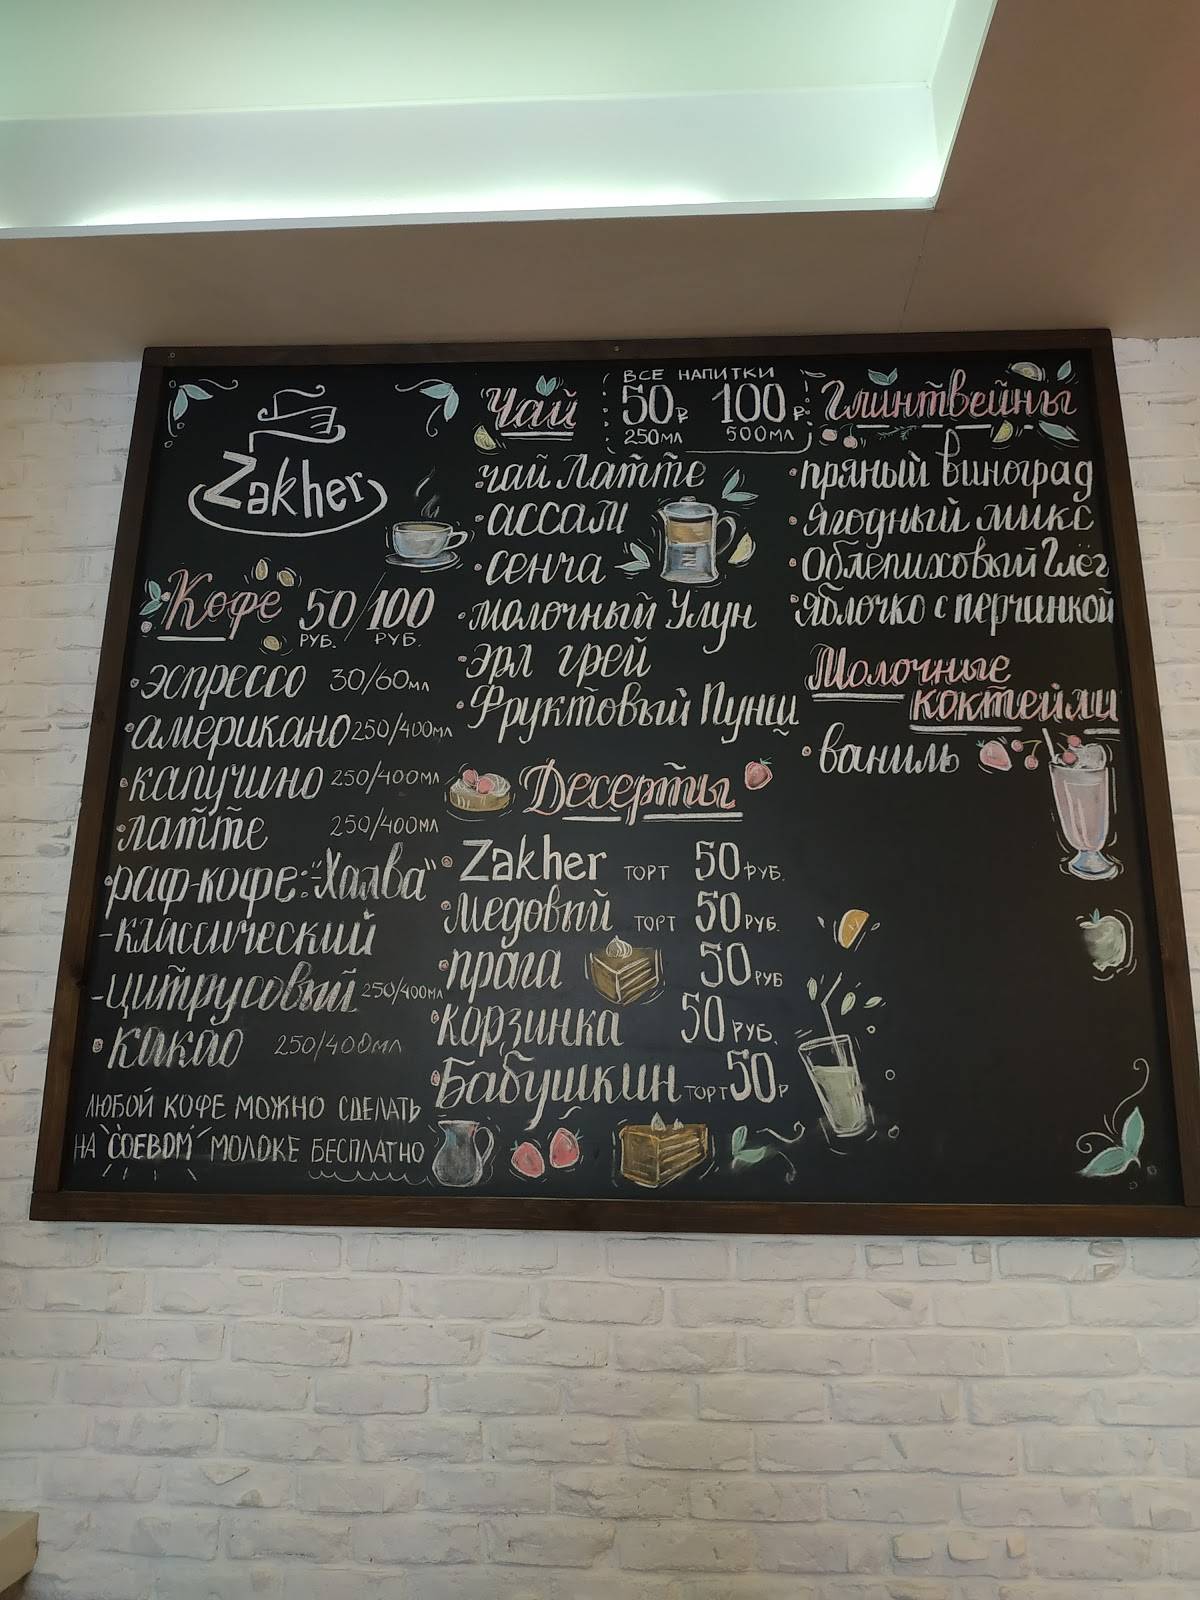 Zakher
Кофе 50/100
РУБ. РУБ.
•эспрессо 30/60мл
•американо 250/400мл
•капучино 250/400мл
•латте 250/400мл
•раф-кофе:-"Халва"
-классический
-цитрусовый 250/400мл
•какао 250/400мл
ЛЮБОЙ КОФЕ МОЖНО СДЕЛАТЬ
НА "СОЕВОМ" МОЛОКЕ БЕСПЛАТНО
Чай
ВСЕ НАПИТКИ
50₽ 100₽
250мл 500мл
•чай Латте
•ассам
•сенча
•молочный Улун
•эрл грей
•Фруктовый Пунш
Десерты
•Zakher ТОРТ 50 РУБ.
•Медовый ТОРТ 50 РУБ.
•прага 50 РУБ
•корзинка 50 РУБ.
•Бабушкин ТОРТ 50₽
Глинтвейны
•пряный виноград
•Ягодный микс
•Облепиховый Глёг
•яблочко с перчинкой
Молочные
коктейли
•ваниль